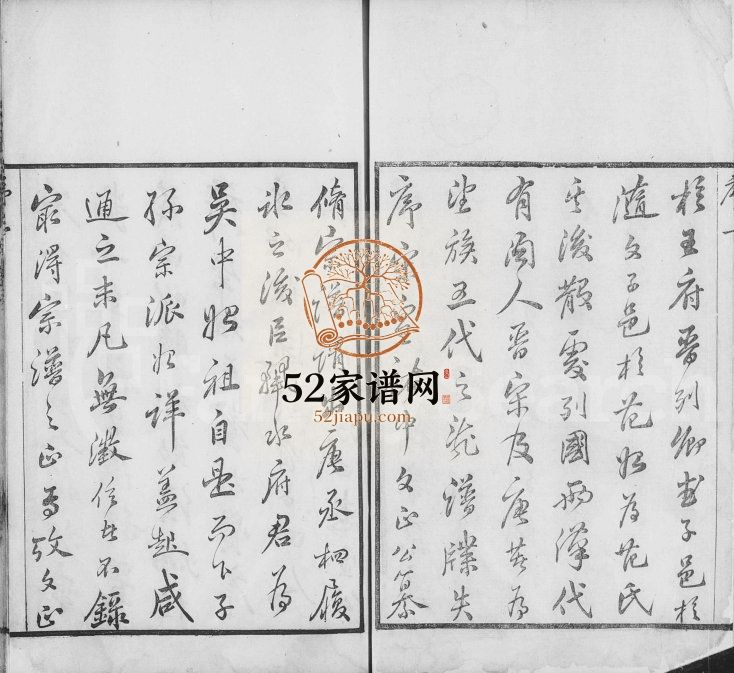 於王府晋列卿武子邑於
隨文子邑於范始為范氏
其後散處列國兩漢代
有聞人晋宋及唐甚為
望族五代之亂譜牒失
序 中文正公纂
脩 唐丞相履
冰之後臣驛水府君為
吳中始祖自是而下子
孫宗派始詳蓋起咸
通之末凡無徵信者不錄
最得宗譜之正焉故文正
序一
52家谱网
52jiapu.com